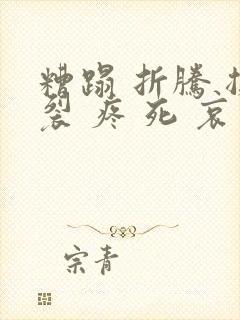 糟蹋 折騰
裂 疼 死 哀
宗青